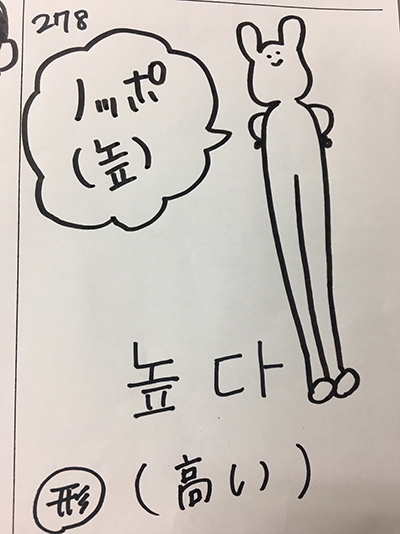 278
ノッポ
(높)
높다
形 (高い)